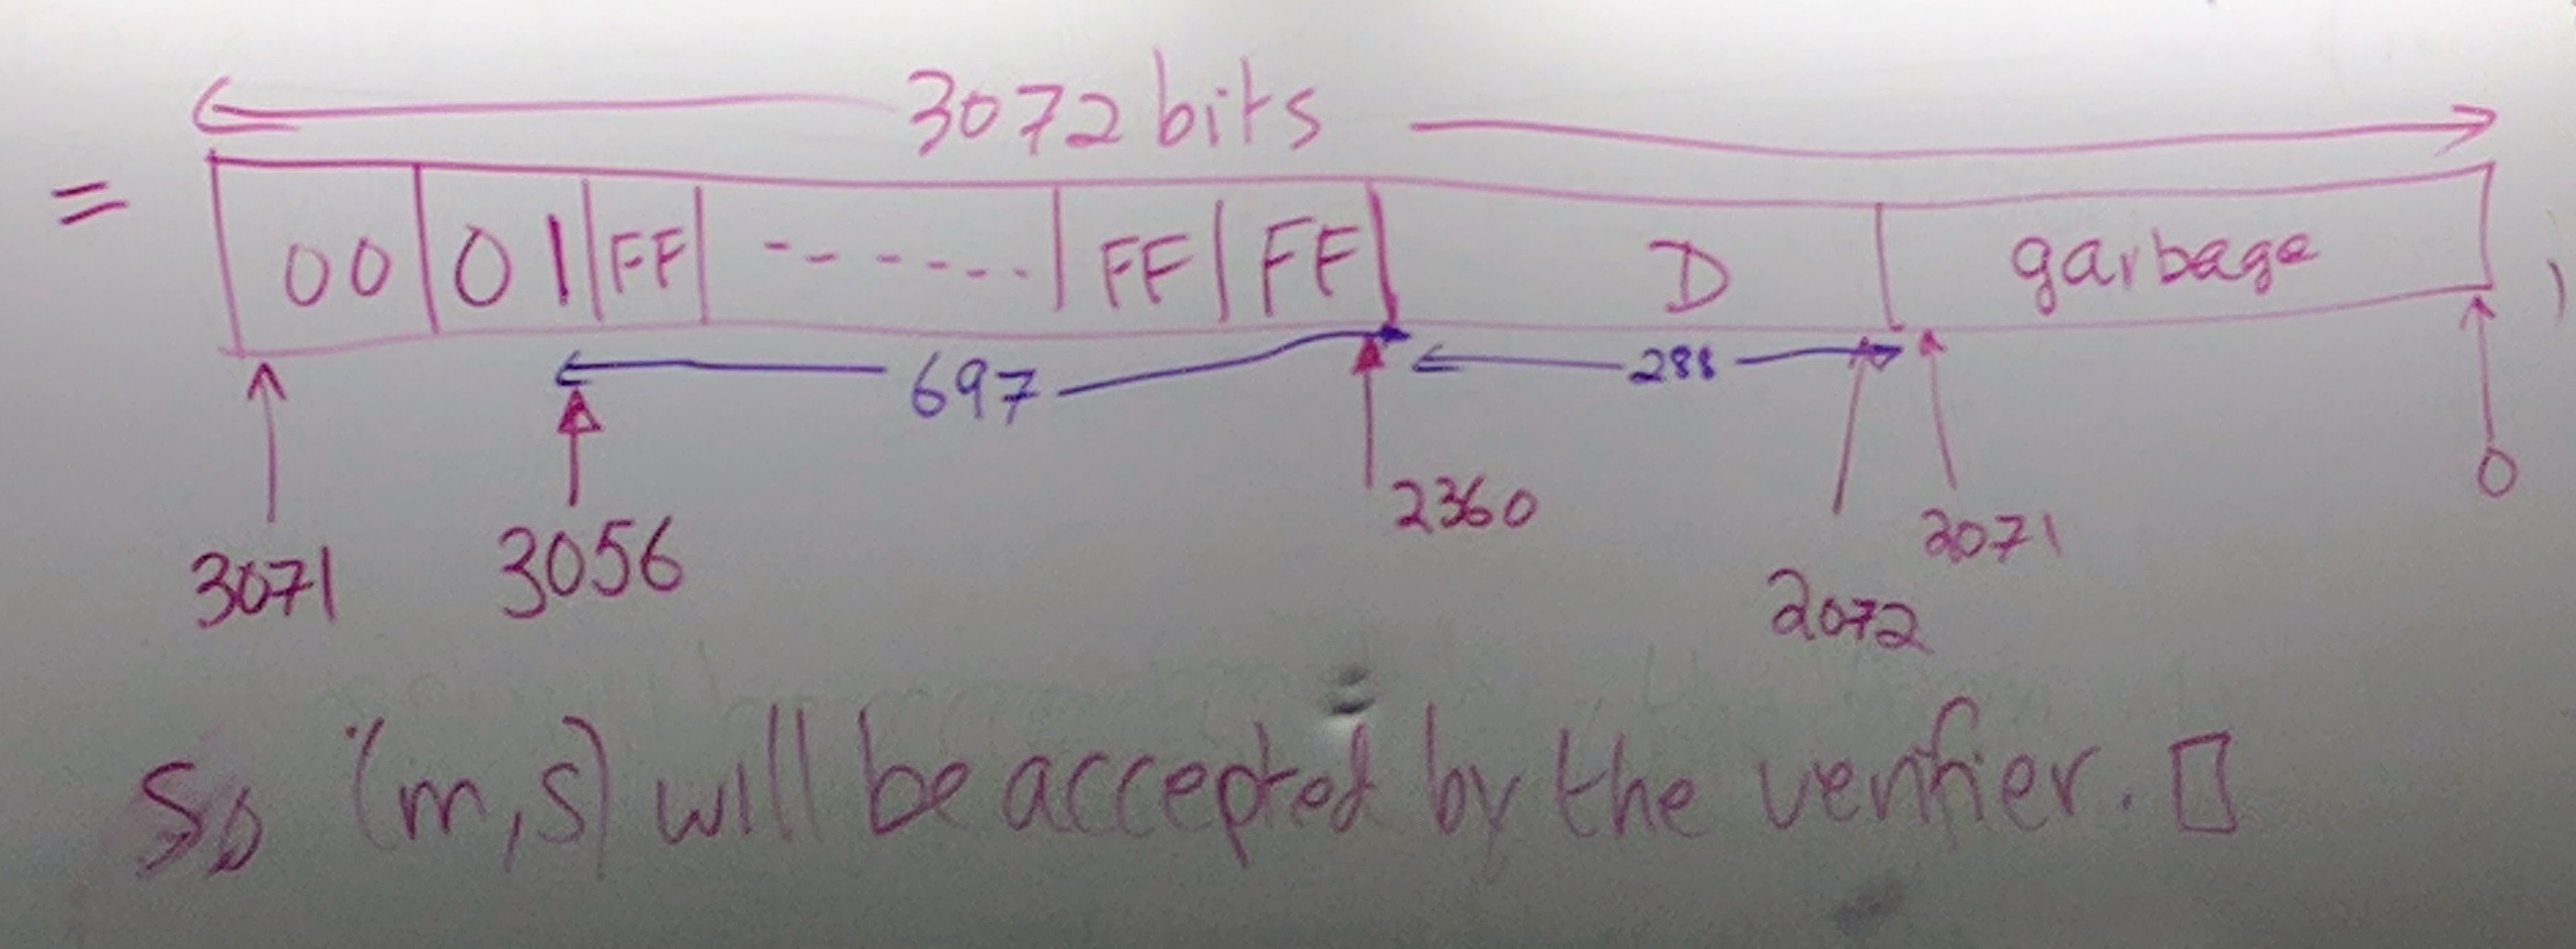 3072 bits
= 00 01 FF ------- FF FF D garbage )
697 288
3071 3056 2360 2072 2071 0
So (m,s) will be accepted by the verifier. □